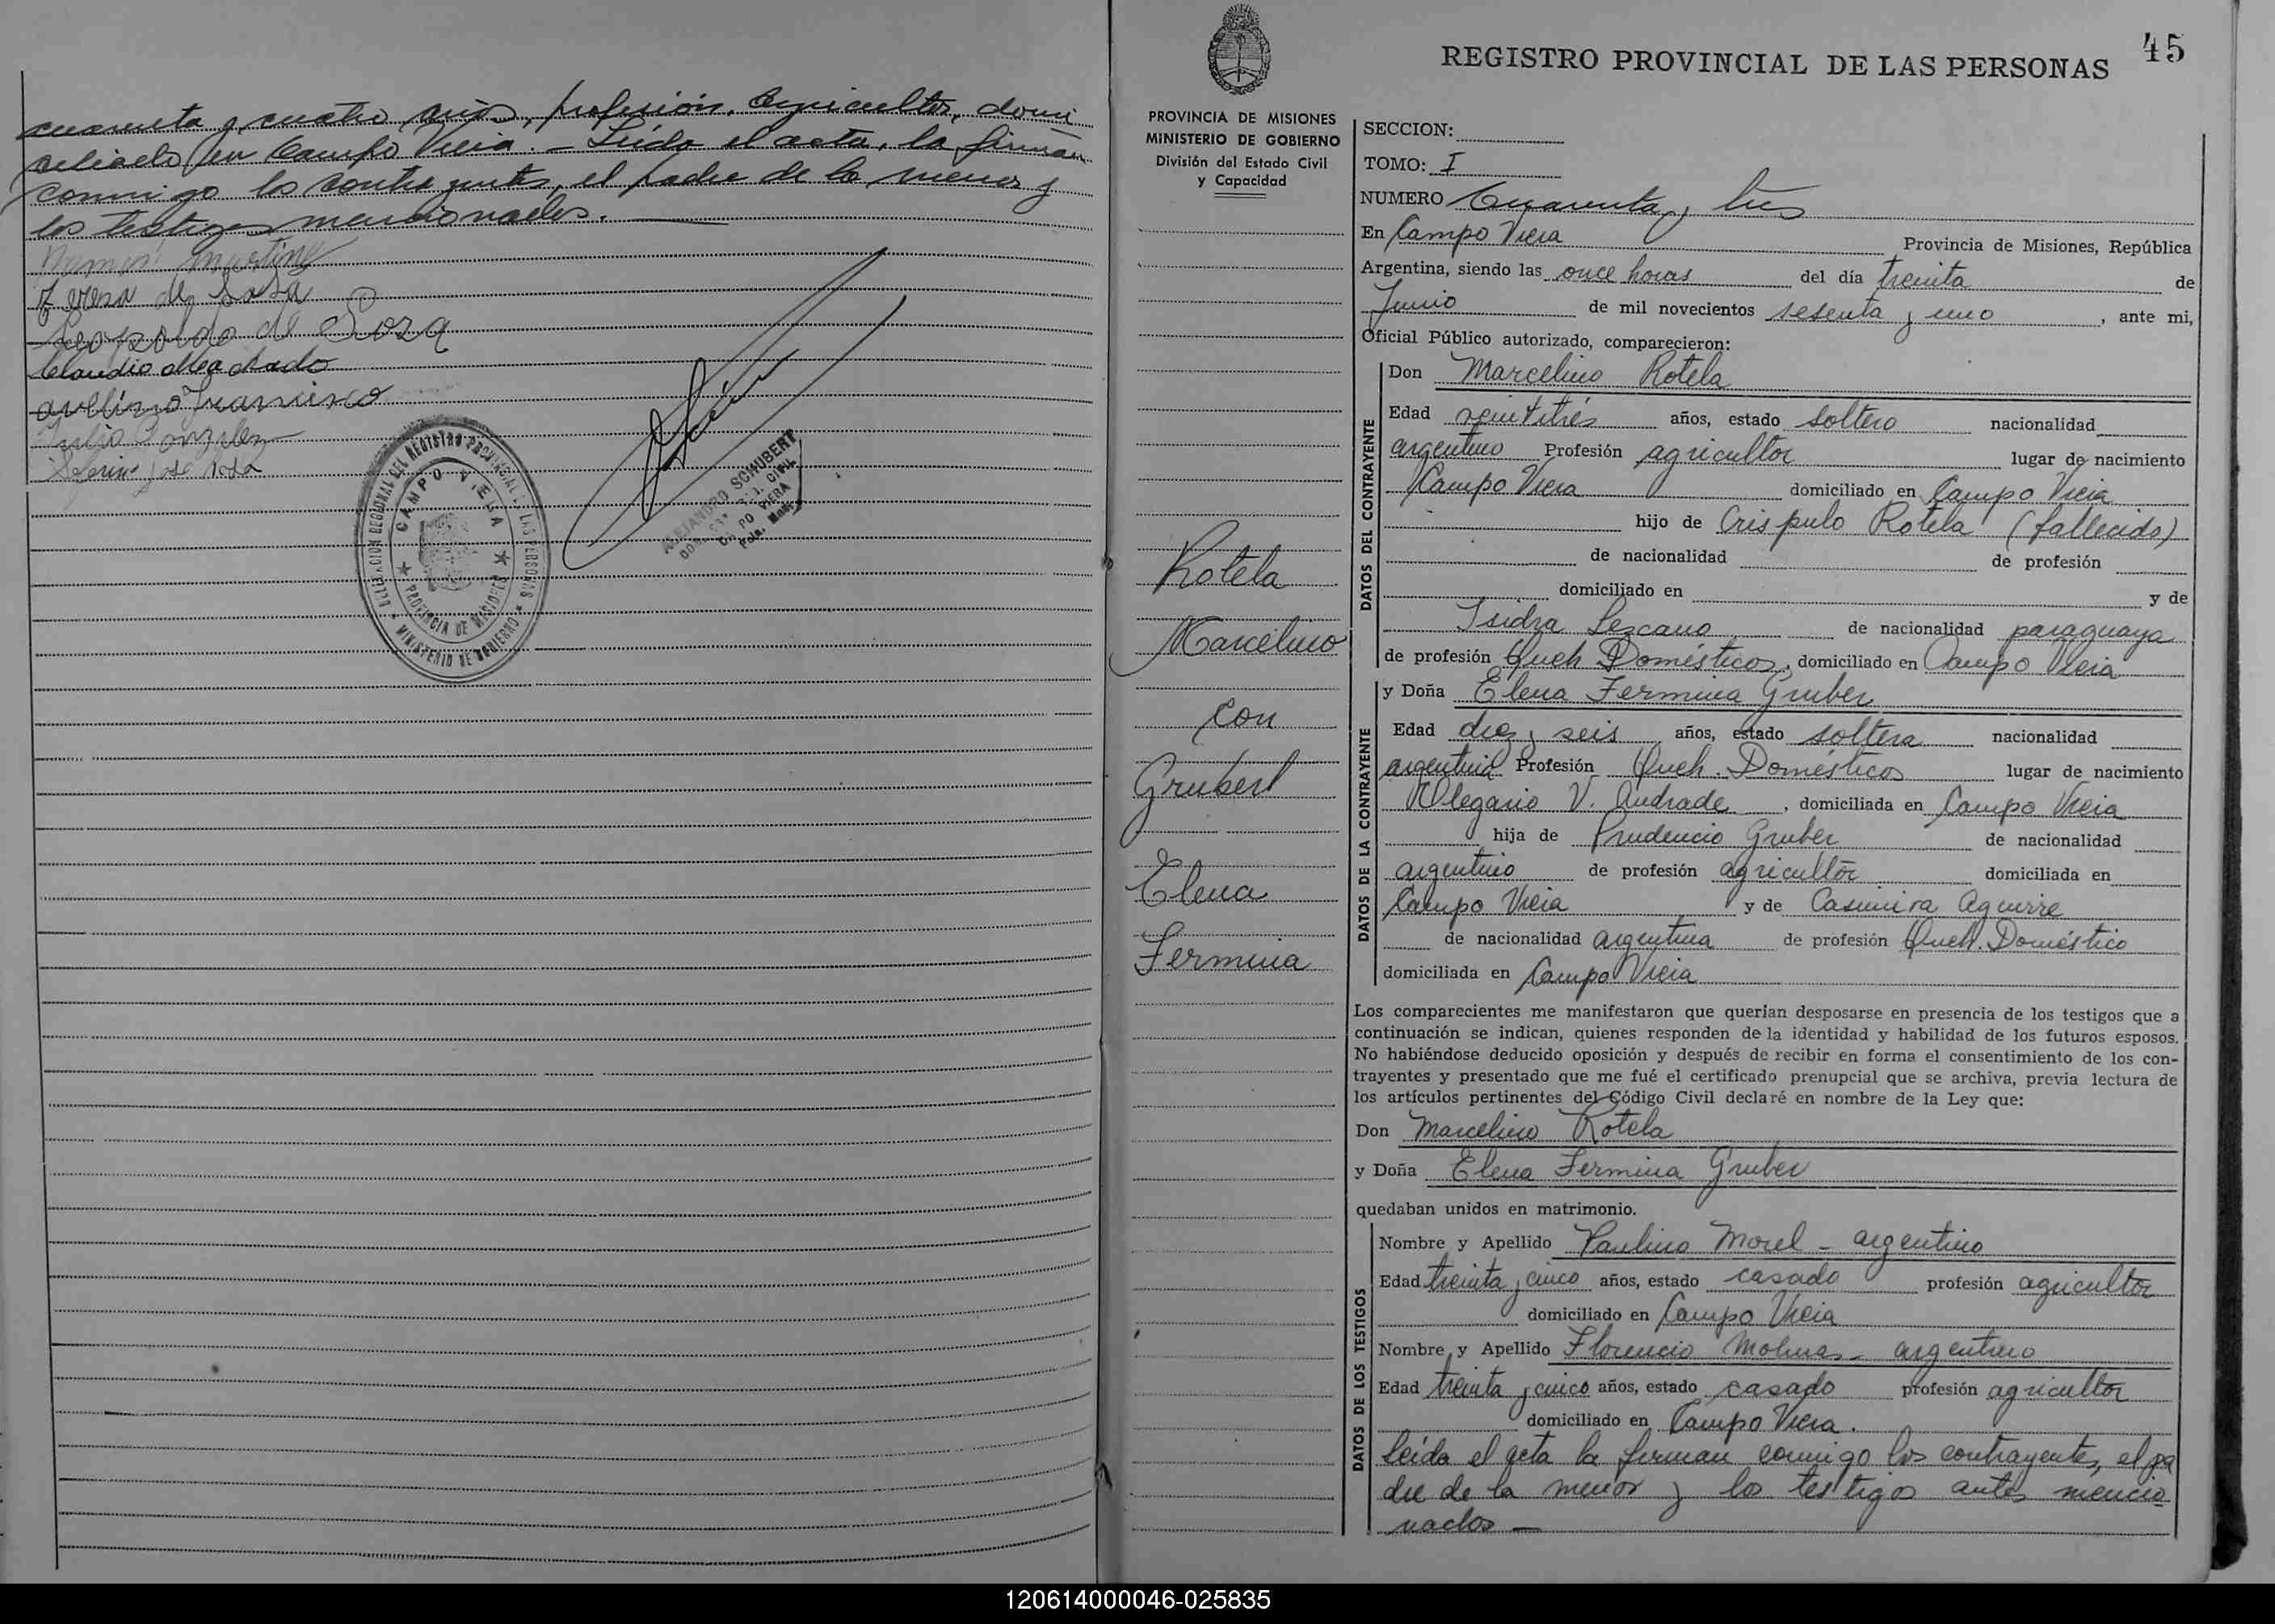 cuarenta y cuatro años, profesión, Agricultor, domi
ciliado en Campo Viera. - Leída el acta, la firman
conmigo los contrayentes, el padre de la menor y
los testigos mencionados.
Ramón Martinez
de Sosa
Leopoldo de Soza
Claudio Machado
avelino Francisco
Julio Gonzalez
José Sosa
DELEGACION REGIONAL DEL REGISTRO PROVINCIAL DE LAS PERSONAS
CAMPO VIERA
PROVINCIA DE MISIONES
MINISTERIO DE GOBIERNO
ALEJANDRO SCHUBERT
CAMPO VIERA
Pcia. Mnes.
45
REGISTRO PROVINCIAL DE LAS PERSONAS
PROVINCIA DE MISIONES
MINISTERIO DE GOBIERNO
División del Estado Civil
y Capacidad
Rotela
Marcelino
con
Grubert
Elena
Fermina
SECCION:
TOMO: I
NUMERO Cuarenta y tres
En Campo Viera Provincia de Misiones, República
Argentina, siendo las once horas del día treinta de
Junio de mil novecientos sesenta y uno, ante mi,
Oficial Público autorizado, comparecieron:
DATOS DEL CONTRAYENTE
Don Marcelino Rotela
Edad veintitrés años, estado soltero nacionalidad
argentino Profesión agricultor lugar de nacimiento
Campo Viera domiciliado en Campo Viera
hijo de Crispulo Rotela (fallecido)
de nacionalidad de profesión
domiciliado en y de
Isidra Lezcano de nacionalidad paraguaya
de profesión Queh. Domésticos, domiciliado en Campo Viera
DATOS DE LA CONTRAYENTE
y Doña Elena Fermina Gruber
Edad diez y seis años, estado soltera nacionalidad
argentina Profesión Queh. Domésticos lugar de nacimiento
Olegario V. Andrade, domiciliada en Campo Viera
hija de Prudencio Gruber de nacionalidad
argentino de profesión agricultor domiciliada en
Campo Viera y de Casimira Aguirre
de nacionalidad argentina de profesión Queh. Doméstico
domiciliada en Campo Viera
Los comparecientes me manifestaron que querían desposarse en presencia de los testigos que a
continuación se indican, quienes responden de la identidad y habilidad de los futuros esposos.
No habiéndose deducido oposición y después de recibir en forma el consentimiento de los con-
trayentes y presentado que me fué el certificado prenupcial que se archiva, previa lectura de
los artículos pertinentes del Código Civil declaré en nombre de la Ley que:
Don Marcelino Rotela
y Doña Elena Fermina Gruber
quedaban unidos en matrimonio.
DATOS DE LOS TESTIGOS
Nombre y Apellido Paulino Morel - argentino
Edad treinta y cinco años, estado casado profesión agricultor
domiciliado en Campo Viera
Nombre y Apellido Florencio Molinas - argentino
Edad treinta y cinco años, estado casado profesión agricultor
domiciliado en Campo Viera.
leída el acta la firman conmigo los contrayentes, el pa
dre de la menor y los testigos antes mencio
nados -
120614000046-025835